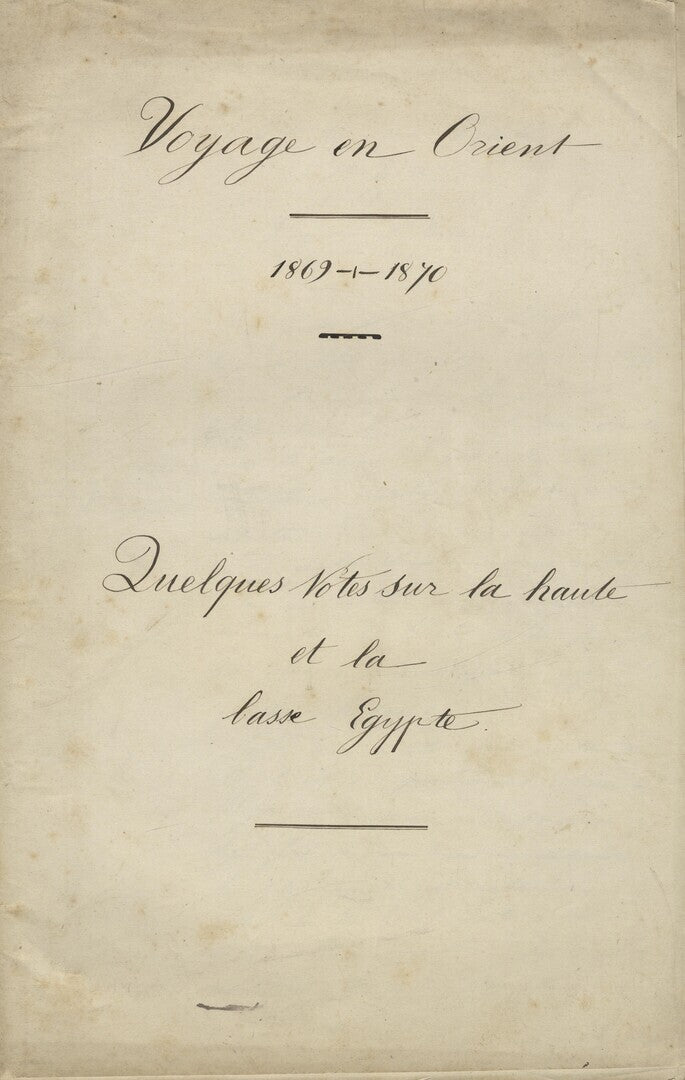 Voyage en Orient
1869-+-1870
Quelques Notes sur la haute
et la
basse Egypte.